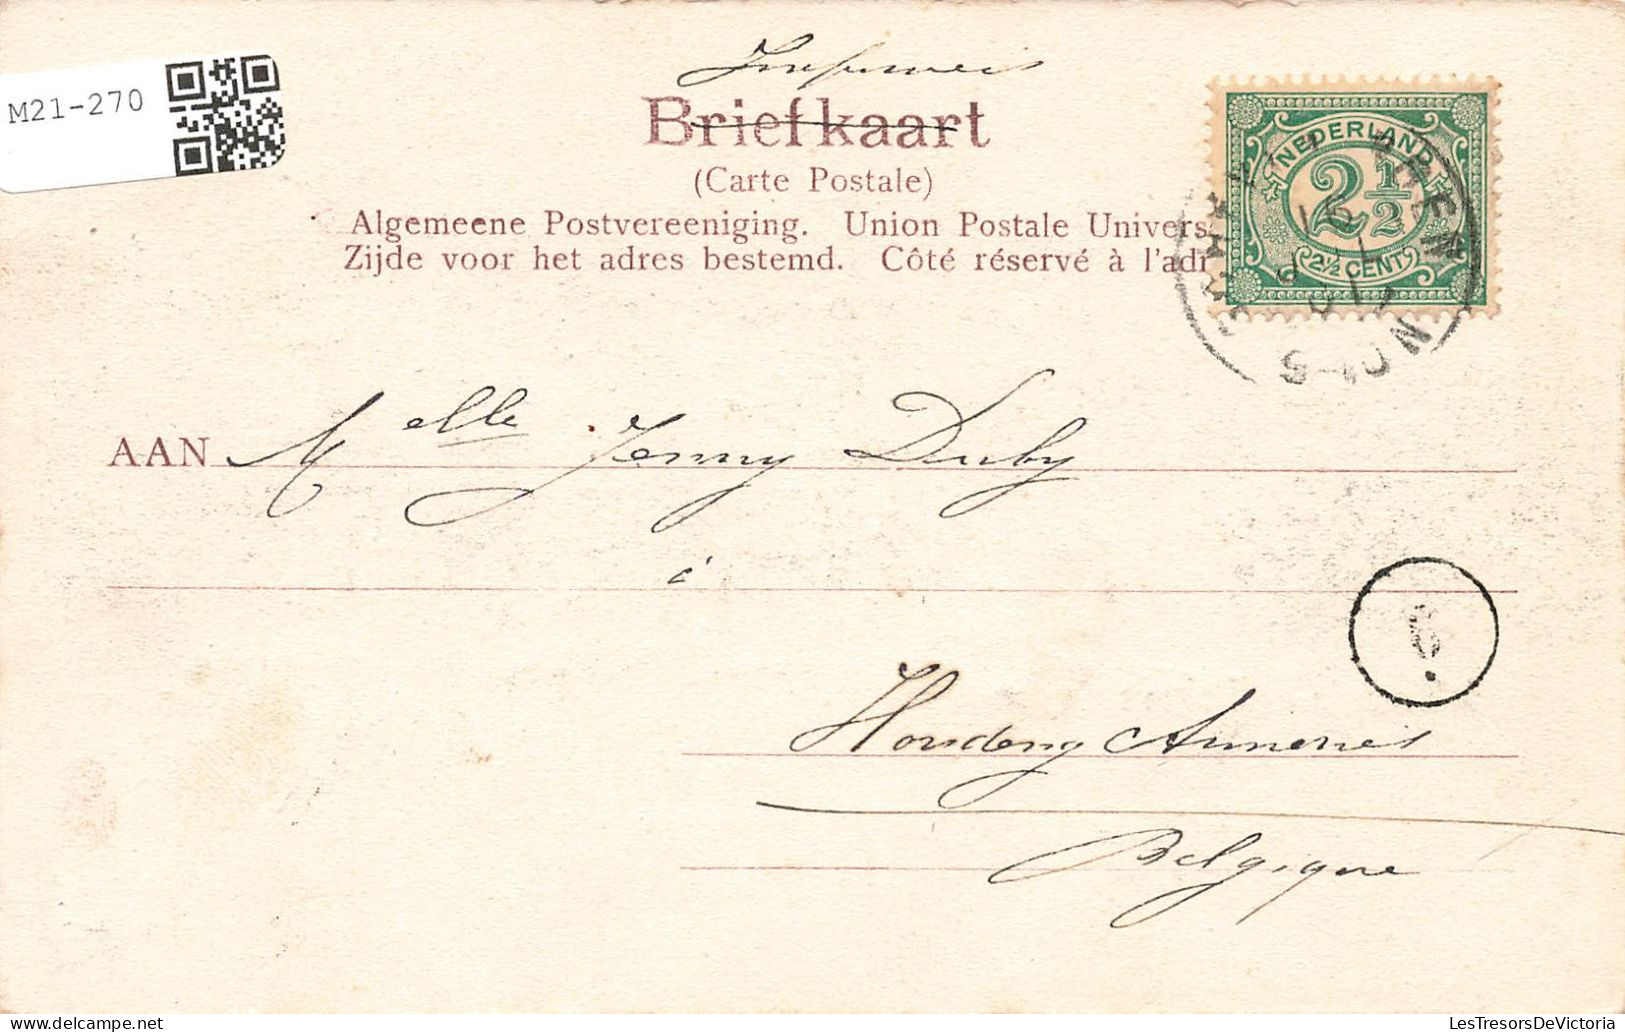 M21-270
Briefkaart
(Carte Postale)
Algemeene Postvereeniging. Union Postale Univers
Zijde voor het adres bestemd. Côté réservé à l'adr
NEDERLAND
2 1/2
2½ CENT
AAN Melle Jenny Duby
à
Houdeng Aimeries
Belgique
6
LesTresorsDeVictoria